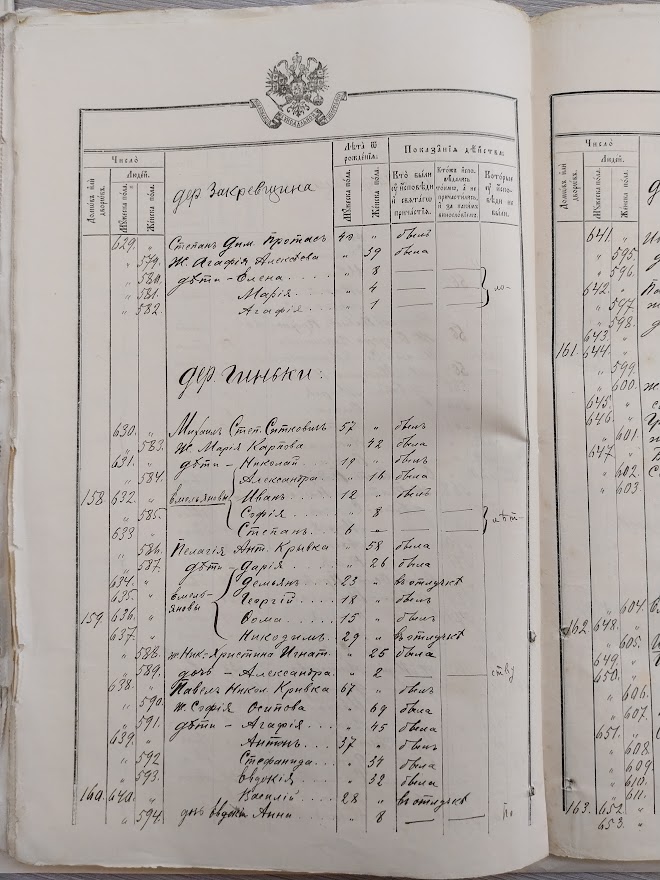 Число
Людей.
Домовъ или дворовъ.
Мужеска пола.
Женска пола.
Лѣта ѿ рожденїѧ.
Мужеска пола.
Женска пола.
Показанїѧ дѣйства.
Кто были оу исповѣди и свѧтагѡ причастїѧ.
Которые оу исповѣди не были.
дер. Закревщина
629. „ Степанъ Дим. Протасъ 40 „ былъ
„ 579. Ж. Агафія Алексѣева „ 39 была
„ 580. дѣти – Елена . . . „ 8 — —
„ 581. Марія . . . „ 4 — — ло-
„ 582. Агафія . . „ 1 — —
дер. Гиньки:
630. „ Михаилъ Степ. Ситковичъ 57 „ былъ
„ 583. Ж. Марія Карпова „ 42 была
631. „ дѣти – Николай . . . 19 „ былъ
„ 584. Александра. . „ 16 была
158. 632. „ Емельяновы Иванъ . . . 12 „ былъ
„ 585. Софія . . . „ 8 — —
633 „ Степанъ . . . 6 — —
„ 586. Пелагія Ант. Крывка „ 58 была
„ 587. дѣти – Дарія . . . „ 26 была
634. „ Демьянъ . . . 23 „ въ отлучкѣ
635. „ Емельяновы Георгій . . . 18 „ былъ
159. 636. „ Ѳома . . . 15 „ былъ
637. „ Никодимъ . . 29 „ въ отлучкѣ
„ 588. ж. Ник. Христина Игнат. „ 25 была
„ 589. дочь – Александра. „ 2 — ству
638. „ Павелъ Никол. Крывка 67 „ былъ
„ 590. Ж. Софія Осипова „ 69 была
„ 591. дѣти – Агафія . . „ 45 была
639. „ Антонъ . . . 37 „ былъ
„ 592 Стефанида . . „ 34 была
„ 593. Евдокія . . . „ 32 была
160. 640. „ Василій . . . 28 „ въ отлучкѣ
„ 594. Анна . . „ 8 — по
Число
Людей.
Домовъ или дворовъ.
Мужеска пола.
Женска пола.
641. „
„ 595.
„ 596.
642. „
„ 597.
„ 598.
643. „
161. 644. „
„ 599.
„ 600.
645.
646. „
„ 601.
647. „
„ 602.
„ 603.
„ 604.
162. 648. „
„ 605.
649. „
650. „
„ 606.
„ 607.
651. „
„ 608
„ 609.
„ 610.
„ 611.
163. 652. „
653. „